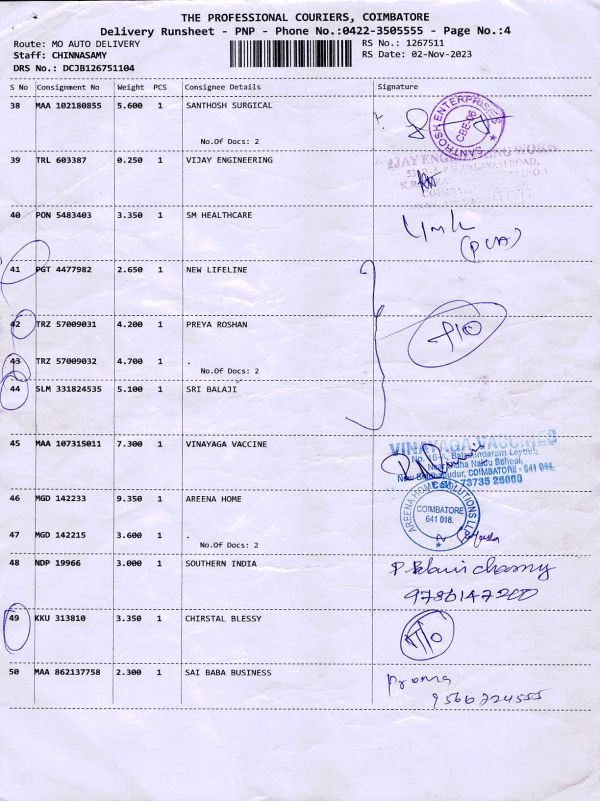 THE PROFESSIONAL COURIERS, COIMBATORE
Delivery Runsheet - PNP - Phone No.:0422-3505555 - Page No.:4
Route: MO AUTO DELIVERY
RS No.: 1267511
Staff: CHINNASAMY
RS Date: 02-Nov-2023
DRS No.: DCJB126751104
S No Consignment No Weight PCS Consignee Details Signature
38 MAA 102180855 5.600 1 SANTHOSH SURGICAL
SANTHOSH ENTERPRISES
CBE
No.Of Docs: 2
39 TRL 603387 0.250 1 VIJAY ENGINEERING
40 PON 5483403 3.350 1 SM HEALTHCARE
41 PGT 4477982 2.650 1 NEW LIFELINE
42 TRZ 57009031 4.200 1 PREYA ROSHAN
43 TRZ 57009032 4.700 1 .
No.Of Docs: 2
44 SLM 331824535 5.100 1 SRI BALAJI
45 MAA 107315011 7.300 1 VINAYAGA VACCINE
VINAYAGA VACCINES
COIMBATORE - 641 044.
73735 26000
46 MGD 142233 9.350 1 AREENA HOME
AREENA HOME SOLUTIONS LLP
COIMBATORE
641 018.
47 MGD 142215 3.600 1 .
No.Of Docs: 2
48 NDP 19966 3.000 1 SOUTHERN INDIA
9786147200
49 KKU 313810 3.350 1 CHIRSTAL BLESSY
50 MAA 862137758 2.300 1 SAI BABA BUSINESS
9566724555